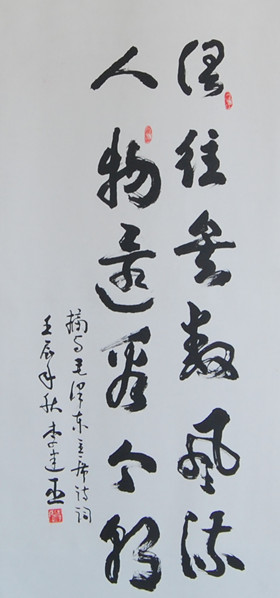 俱往矣數風流
人物還看今朝
摘毛泽东主席诗词
壬辰年秋李